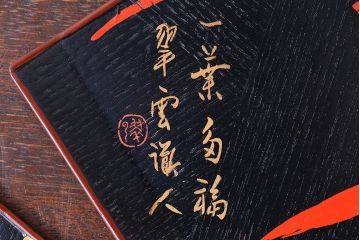 一葉多福
翠雲道人